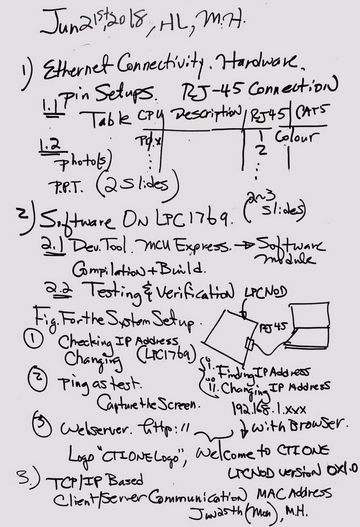 Jun 21st, 2018, HL, M.H.
1) Ethernet Connectivity. Hardware.
pin Setups. RJ-45 Connection
1.1 Table CPU Description RJ45 CAT5
P0.x 1 Colour
2
1.2
photo(s)
P.P.T. (2 Slides) (2~3 Slides)
2) Software ON LPC1769.
2.1 Dev. Tool. MCU Express. → Software Module
Compilation + Build.
2.2 Testing & Verification LPCNOD
Fig. For the System Setup. RJ45
① Checking IP Address
Changing (LPC1769)
i. Finding IP Address
ii. Changing IP Address
② Ping as test. 192.168.1.xxx
Capture the Screen.
③ Webserver. http:// with Browser.
Logo "CTIONE Logo", Welcome to CTIONE
LPCNOD version 0x1.0
3.) TCP/IP Based
Client/Server Communication MAC Address
Jun 25th (Mon), M.H.